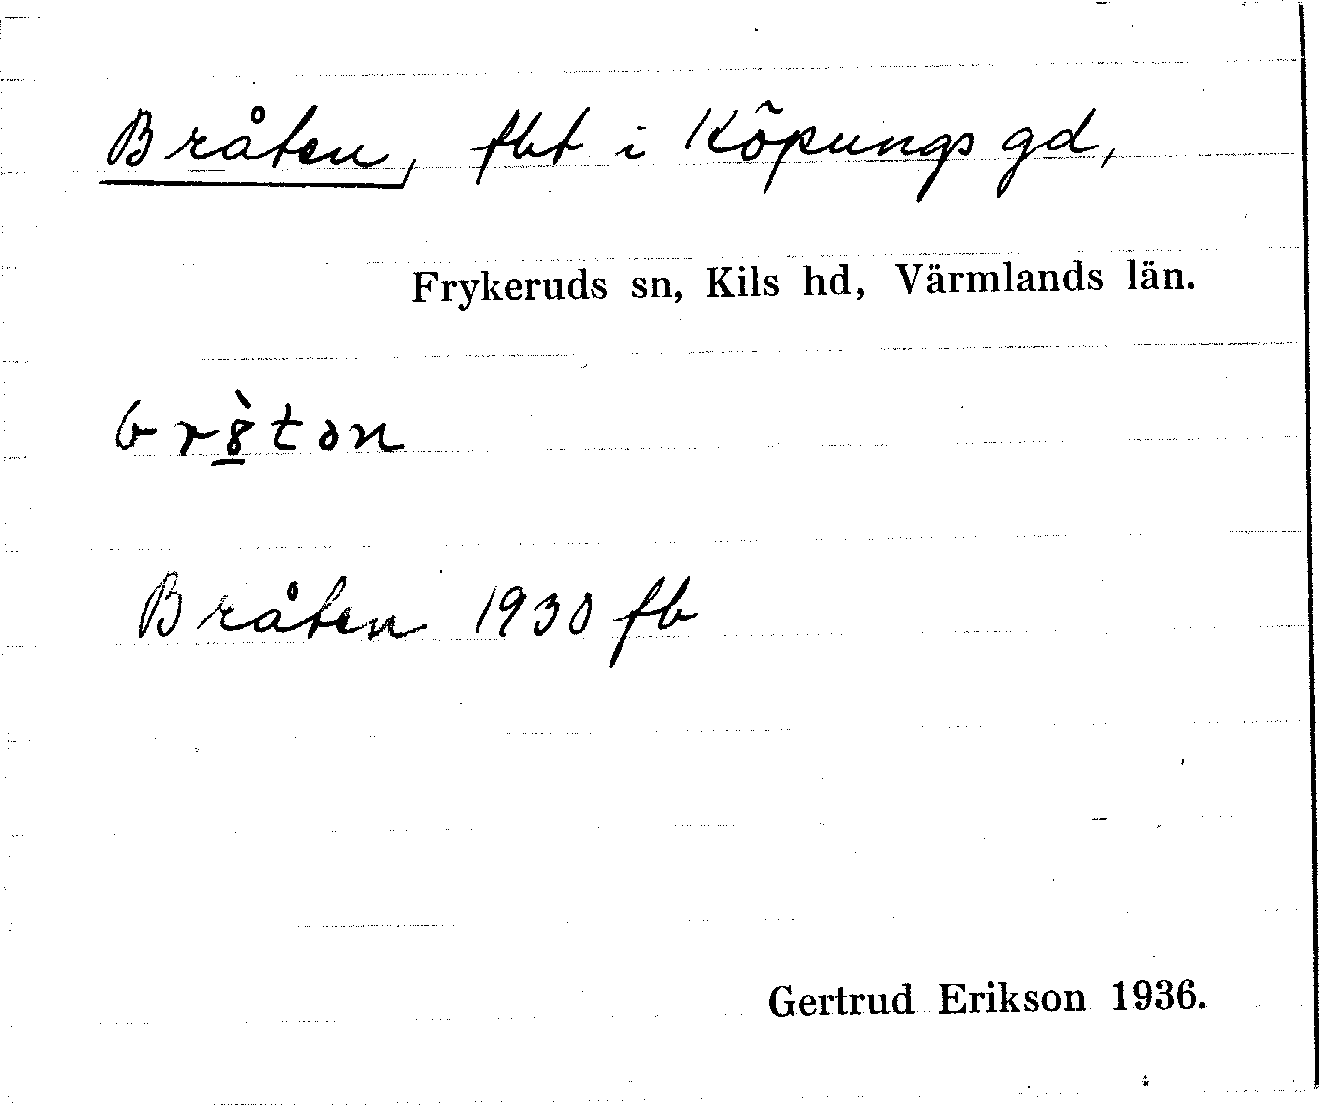 Bråten, fbt i Köpungs gd,
Frykeruds sn, Kils hd, Värmlands län.
br8̀tən
Bråten 1930 fb
Gertrud Erikson 1936.